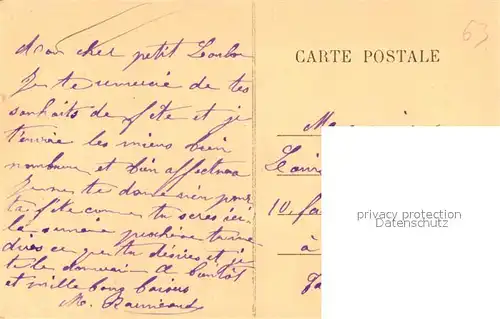 mon cher petit Loulou
Je te remercie de tes
souhaits de fête et je
t'envoie les miens bien
nombreux et bien affectueux
Je ne te donne rien pour
ta fête comme tu seras ici
la semaine prochaine tu me
diras ce que tu désires et je
te le donnerai à bientôt
et mille bons baisers
M.
CARTE POSTALE
63
10,
à
privacy protection
www.ansichtskarten-center.de